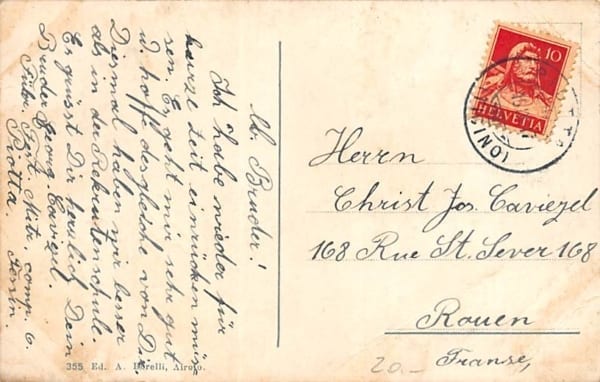 Lb. Bruder!
Ich habe wieder für
kurze Zeit einrücken müs-
sen. Es geht mir sehr gut
u. hoffe desgleiche von Dir.
Diesmal haben wir besser
als in der Rekrutenschule.
Es grüsst Dir herzlich Dein
Bruder Georg Caviezel.
Füs. Mitr. comp. 6.
Piotta. Tessin.
355 Ed. A. Borelli, Airolo.
10
HELVETIA
PIOTTA
Herrn
Christ Jos. Caviezel
168 Rue St. Sever 168
Rouen
Franse,
20.-